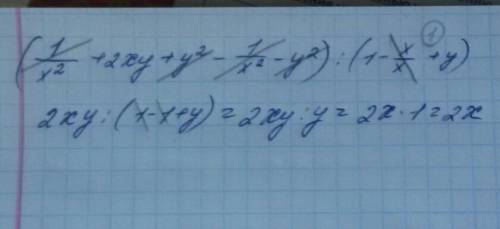 (1/x² + 2xy + y² - 1/x² - y²) : (1 - x/x ① + y)
2xy : (1 - 1 + y) = 2xy : y = 2x · 1 = 2x